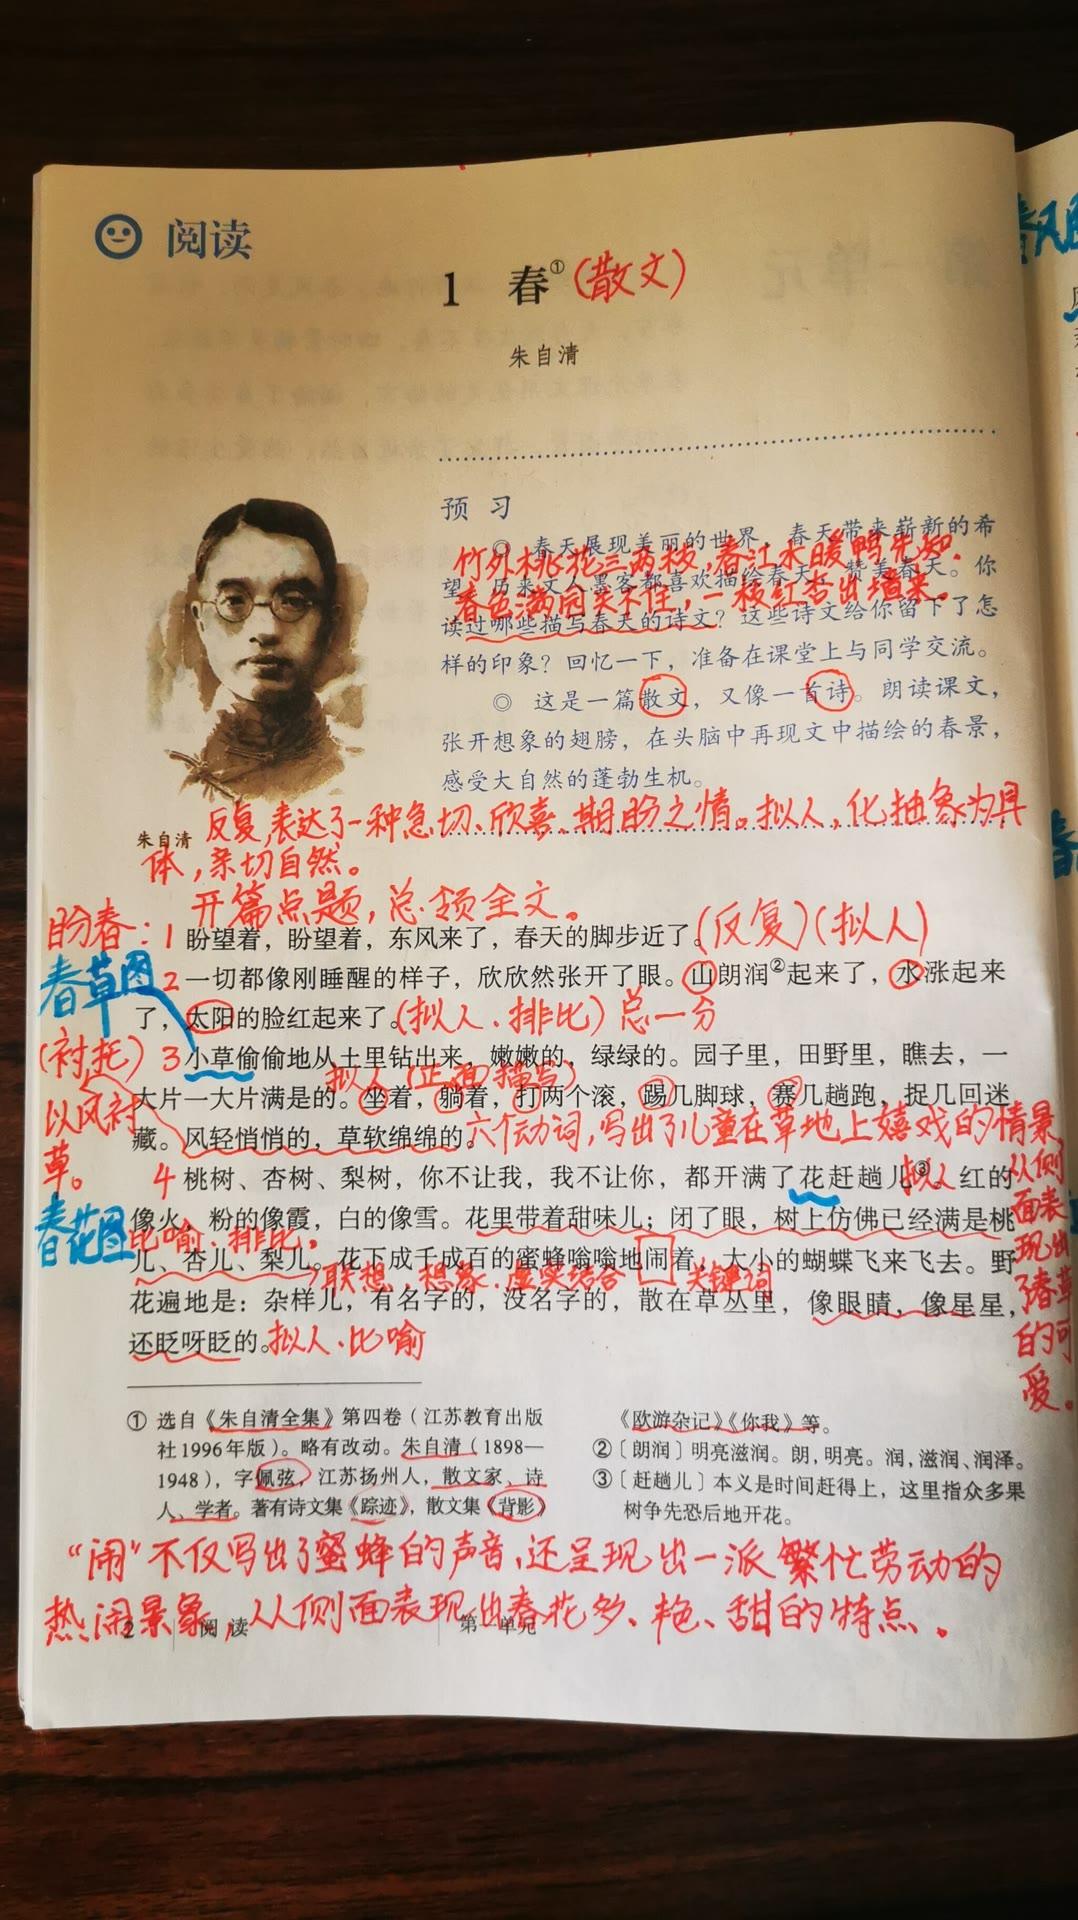 阅读
1 春①(散文)
朱自清
预 习
◎ 春天展现美丽的世界，春天带来崭新的希
竹外桃花三两枝，春江水暖鸭先知.
望。历来文人墨客都喜欢描绘春天、赞美春天。你
春色满园关不住，一枝红杏出墙来。
读过哪些描写春天的诗文？这些诗文给你留下了怎
样的印象？回忆一下，准备在课堂上与同学交流。
◎ 这是一篇散文，又像一首诗。朗读课文，
张开想象的翅膀，在头脑中再现文中描绘的春景，
感受大自然的蓬勃生机。
朱自清
反复,表达了一种急切、欣喜、期盼之情。拟人，化抽象为具
体，亲切自然。
开篇点题，总领全文。
盼春：1 盼望着，盼望着，东风来了，春天的脚步近了。(反复)(拟人)
春草图
2 一切都像刚睡醒的样子，欣欣然张开了眼。山朗润②起来了，水涨起来
了，太阳的脸红起来了。(拟人、排比)总一分
(衬托)
3 小草偷偷地从土里钻出来，嫩嫩的，绿绿的。园子里，田野里，瞧去，一
拟人(正面描写)
大片一大片满是的。坐着，躺着，打两个滚，踢几脚球，赛几趟跑，捉几回迷
以风衬
草。
藏。风轻悄悄的，草软绵绵的。六个动词，写出了儿童在草地上嬉戏的情景，
从侧
面表
现出
了春草
的可
爱。
4 桃树、杏树、梨树，你不让我，我不让你，都开满了花赶趟儿③。红的
拟人
春花图
像火，粉的像霞，白的像雪。花里带着甜味儿；闭了眼，树上仿佛已经满是桃
比喻、排比。
儿、杏儿、梨儿。花下成千成百的蜜蜂嗡嗡地闹着，大小的蝴蝶飞来飞去。野
联想，想象、虚实结合 关键词
花遍地是：杂样儿，有名字的，没名字的，散在草丛里，像眼睛，像星星，
还眨呀眨的。拟人、比喻
① 选自《朱自清全集》第四卷（江苏教育出版
社1996年版）。略有改动。朱自清（1898—
1948），字佩弦，江苏扬州人，散文家、诗
人、学者。著有诗文集《踪迹》，散文集《背影》
《欧游杂记》《你我》等。
②〔朗润〕明亮滋润。朗，明亮。润，滋润、润泽。
③〔赶趟儿〕本义是时间赶得上，这里指众多果
树争先恐后地开花。
“闹”不仅写出了蜜蜂的声音，还呈现出一派繁忙劳动的
热闹景象，从侧面表现出春花多、艳、甜的特点．
2 阅 读 第一单元